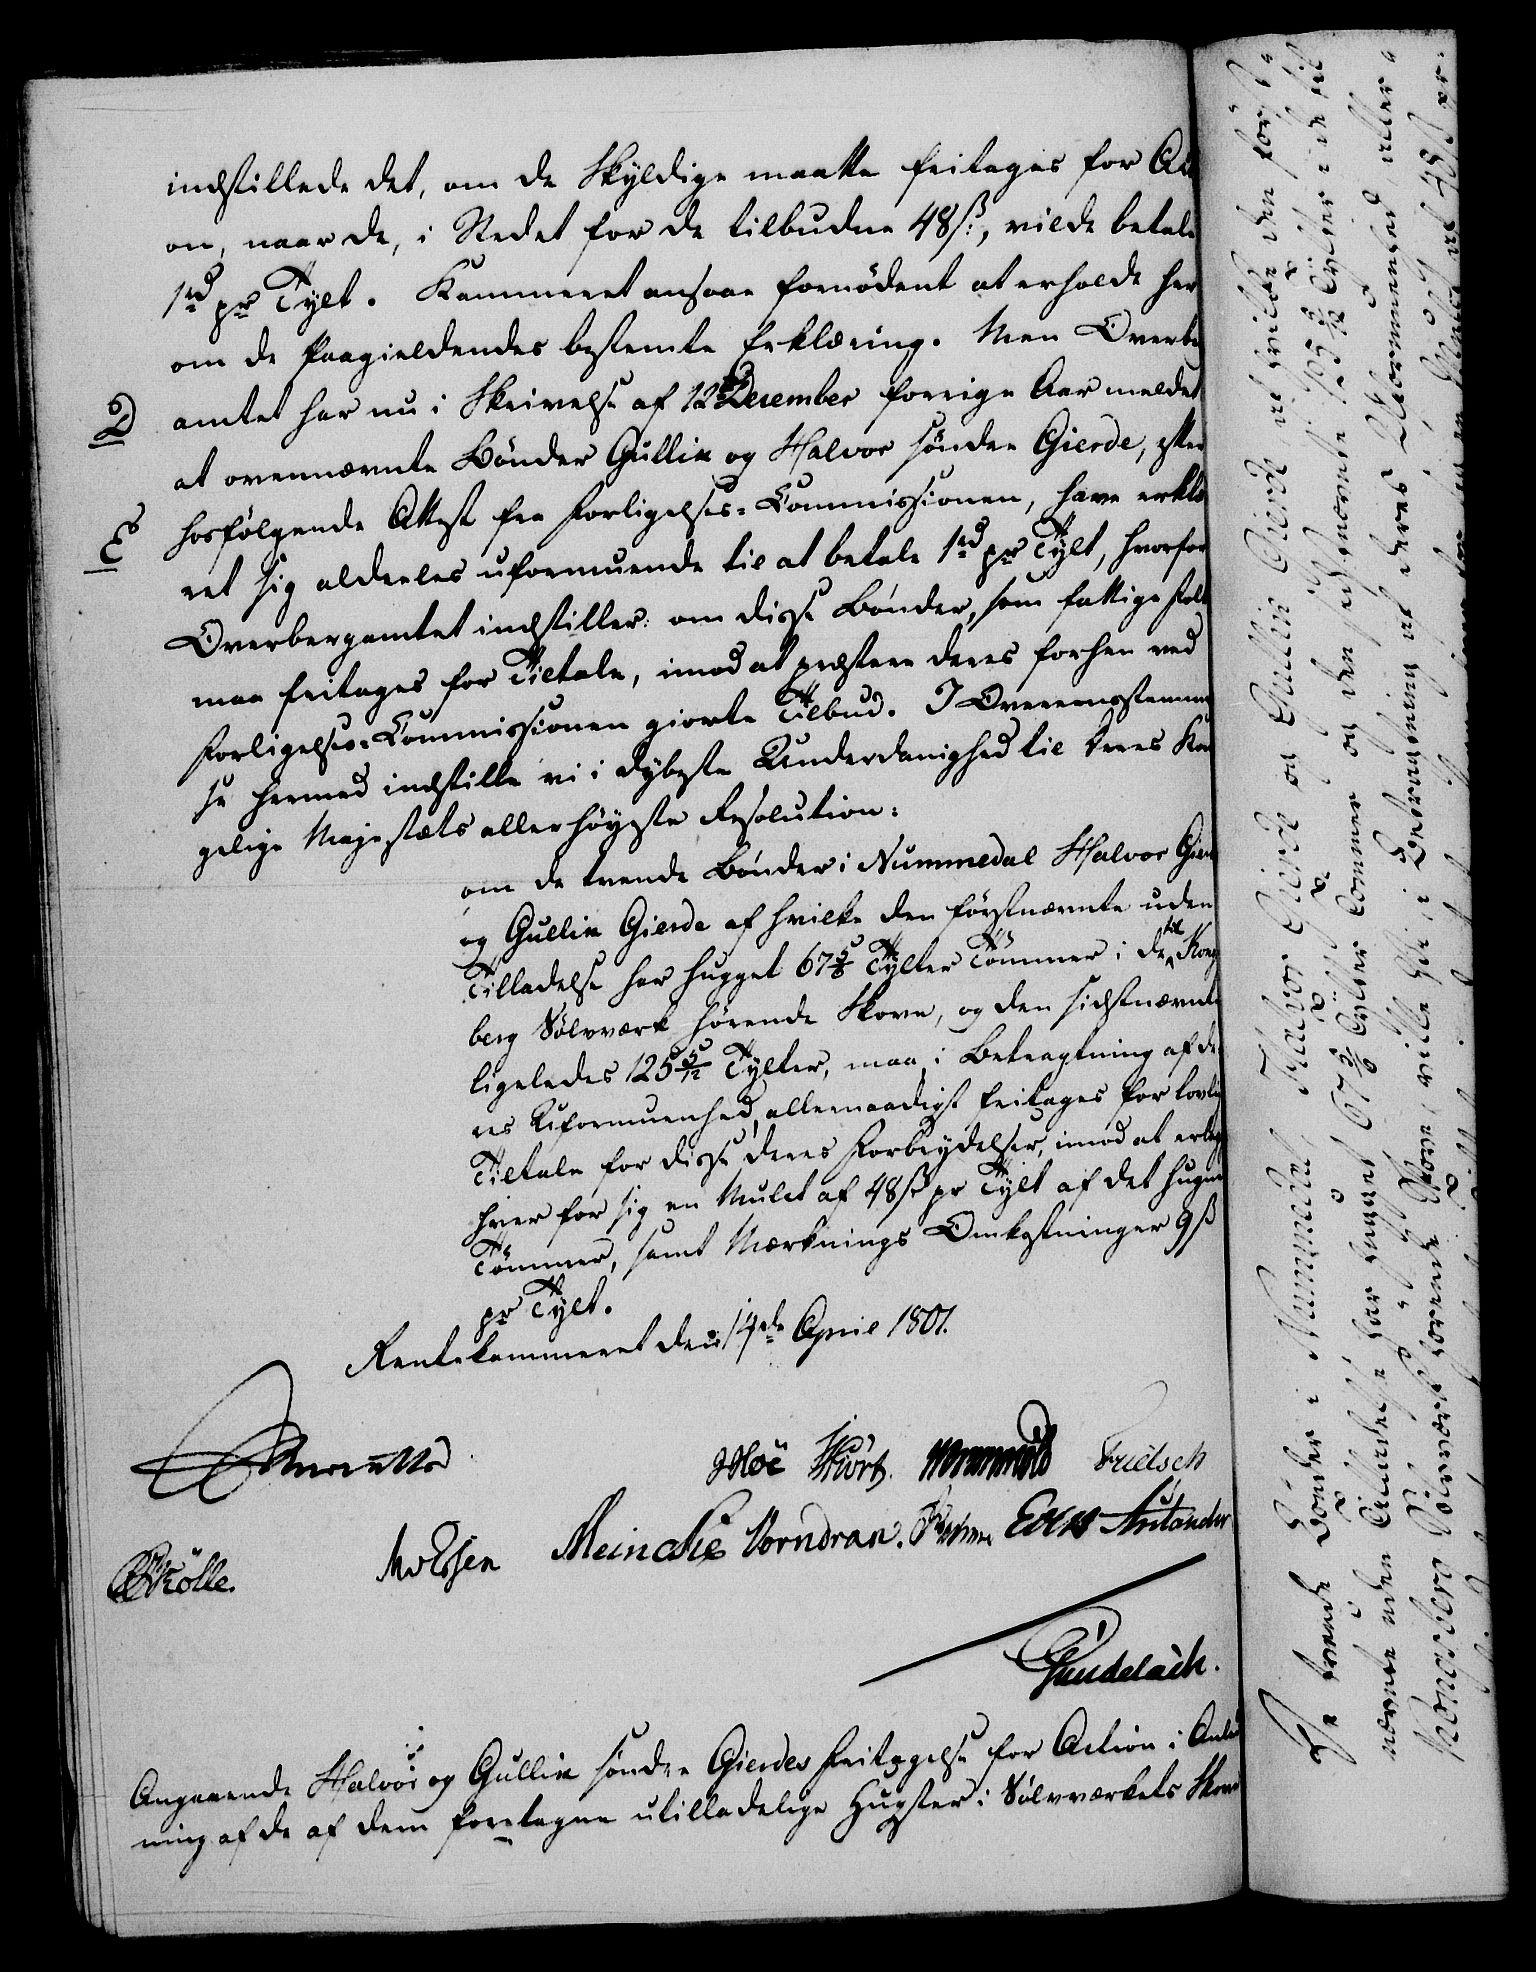 indstillede det, om de Skyldige maatte fritages for Acti
on, naar de, i Stedet for de tilbudne 48 ß:, vilde betale
1 rd pr Tylt. Kammeret ansaae fornödent at erholde her
om de Paagieldendes bestemte Erklæring. Men Overbe
D
amtet har nu i Skrivelse af 12te December forrige Aar meldet
at ovennævnte Bönder Gullik og Halvor söndre Gierde, efter
E
hosfölgende Attest fra Forligelses-Commissionen, have erklæ
ret sig alderles uformuende til at betale 1 rd pr Tylt, hvorfor
Overbergamtet indstiller: om disse Bönder, som fattige Folk
maa fritages for Tiltale, imod at præstere deres forhen ved
Forligelses-Commissionen giorte Tilbud. I Overeensstemmel
se hermed indstille vi i dybeste Underdanighed til Deres Kon
gelige Majestæts allerhöyeste Resolution:
om de tvende Bönder i Nummedal Halvor Gierde
og Gullik Gierde af hvilke den förstnævnte uden
Tilladelse har hugget 67 5/6 Tylter Tömmer i de til Kongs
berg Sölvværk hörende Skove, og den sidstnævnte
ligeledes 125 5/12 Tylter, maa, i Betragtning af de
res Uformuenhed, allernaadigst fritages for lovlig
Tiltale for disse deres Forbrydelser, imod at erlægge
hver for sig en Mulct af 48 ß pr Tylt af det hugne
Tömmer, samt Mærknings Omkostninger 9 ß
pr Tylt.
Rentekammeret den 14de April 1801.
Moë Hiort. Wormskiold Fridsch
Krölle. MvEssen Meincke Vorndran. Evers
Gundelach.
Angaaende Halvor og Gullik söndre Gierdes Fritagelse for Action i Anled
ning af de af dem foretagne utilladelige Hugster i Sölvværkets Skove
De tvende Bönder i Nummedal, Halvor Gierde og Gullik Gierde, af hvilke den först-
nævnte uden Tilladelse har hugget 67 5/6 Tylter Tömmer og den sidstnævnte 125 5/12 Tylter i de til
Kongsberg Sölvværk hörende Skove, ville Vi, i Betragtning af deres Uformuenhed, aller-